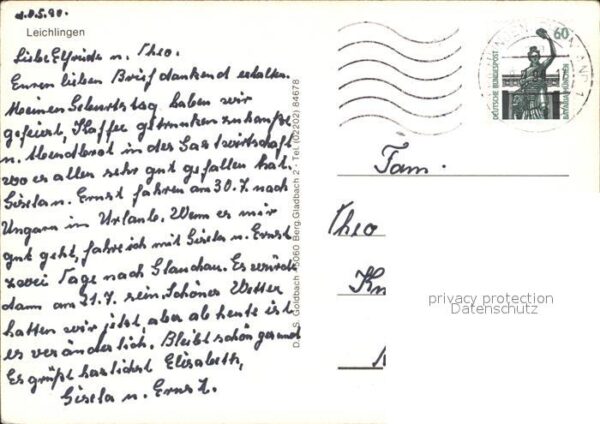 d. 8.5.90.
Leichlingen
Liebe Elfriede u. Theo.
Euren lieben Brief dankend erhalten.
Meinen Geburtstag haben wir
gefeiert, Kaffee getrunken zuhause
u. Abendbrot in der Gastwirtschaft
wo es allen sehr gut gefallen hat.
Gisela u. Ernst fahren am 30.7. nach
Ungarn in Urlaub. Wenn es mir
gut geht, fahre ich mit Gisela u. Ernst
zwei Tage nach Glauchau. Es würde
dann am 21.7. sein. Schönes Wetter
hatten wir jetzt, aber ab heute ist
es veränderlich. Bleibt schön gesund
Es grüßt herzlichst Elisabeth,
Gisela u. Ernst.
D. S. Goldbach · 5060 Berg.Gladbach 2 · Tel. (02202) 84678
60
DEUTSCHE BUNDESPOST
Fam.
Theo
Kn
privacy protection
Datenschutz